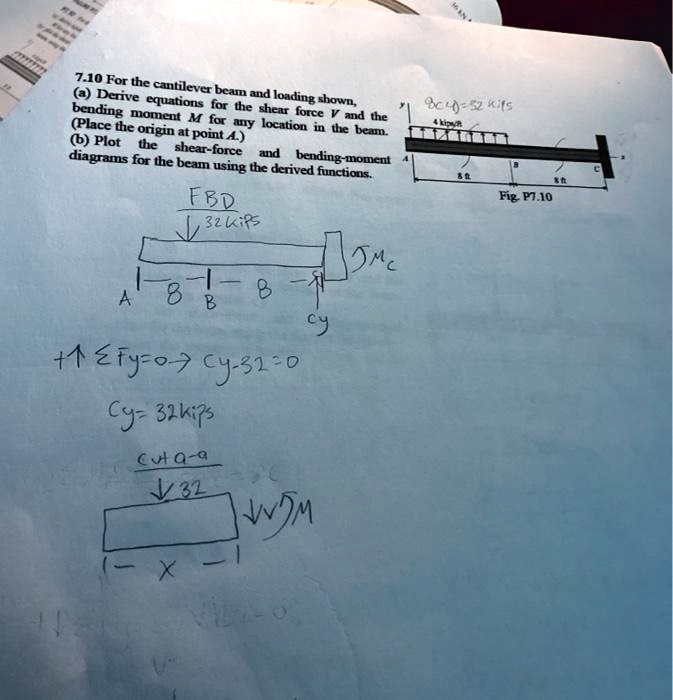 7.10 For the cantilever beam and loading shown,
(a) Derive equations for the shear force V and the
bending moment M for any location in the beam.
(Place the origin at point A.)
(b) Plot the shear-force and bending-moment
diagrams for the beam using the derived functions.
8(4)=32 kips
y
4 kips/ft
A
B
C
x
8 ft
8 ft
Fig. P7.10
FBD
32kips
Mc
A
8
B
8
Cy
+↑ ΣFy=0→ Cy-32=0
Cy= 32kips
Cut a-a
32
V
M
X